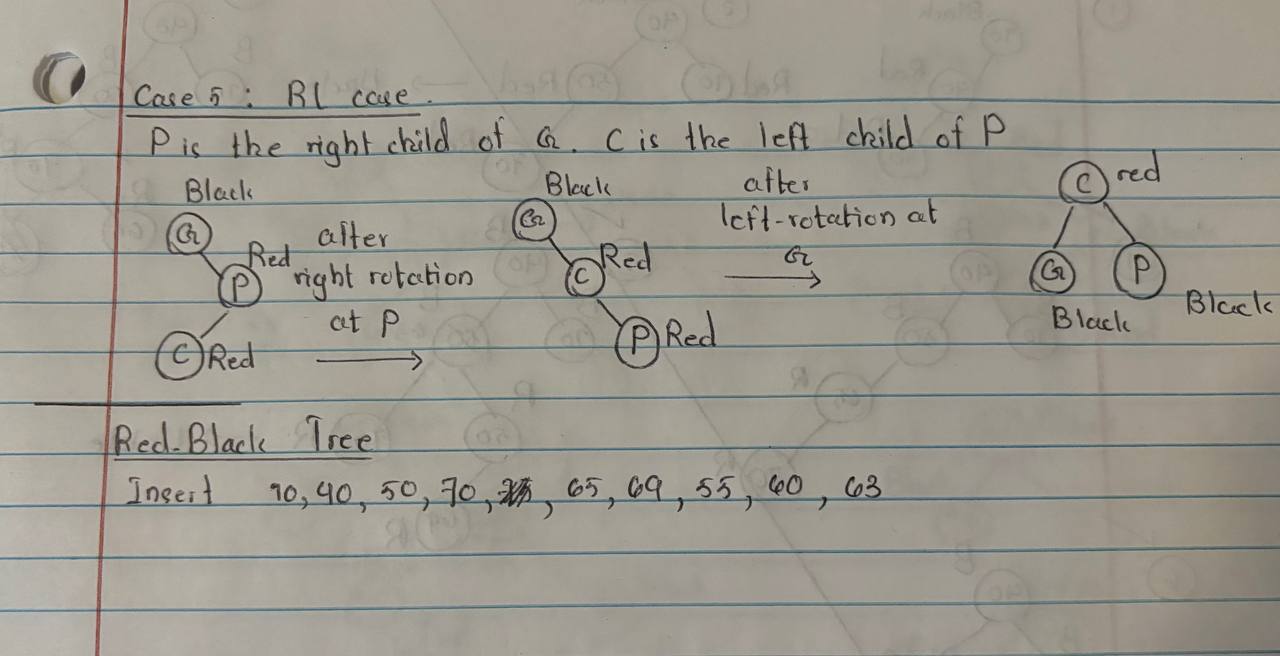 Case 5: RL case.
P is the right child of G. C is the left child of P
Black
G
Red
P
C Red
after
right rotation
at P
Black
G
Red
C
P Red
after
left-rotation at
G
C red
G
P
Black
Black
Red-Black Tree
Insert 90, 40, 50, 70, , 65, 69, 55, 60, 63